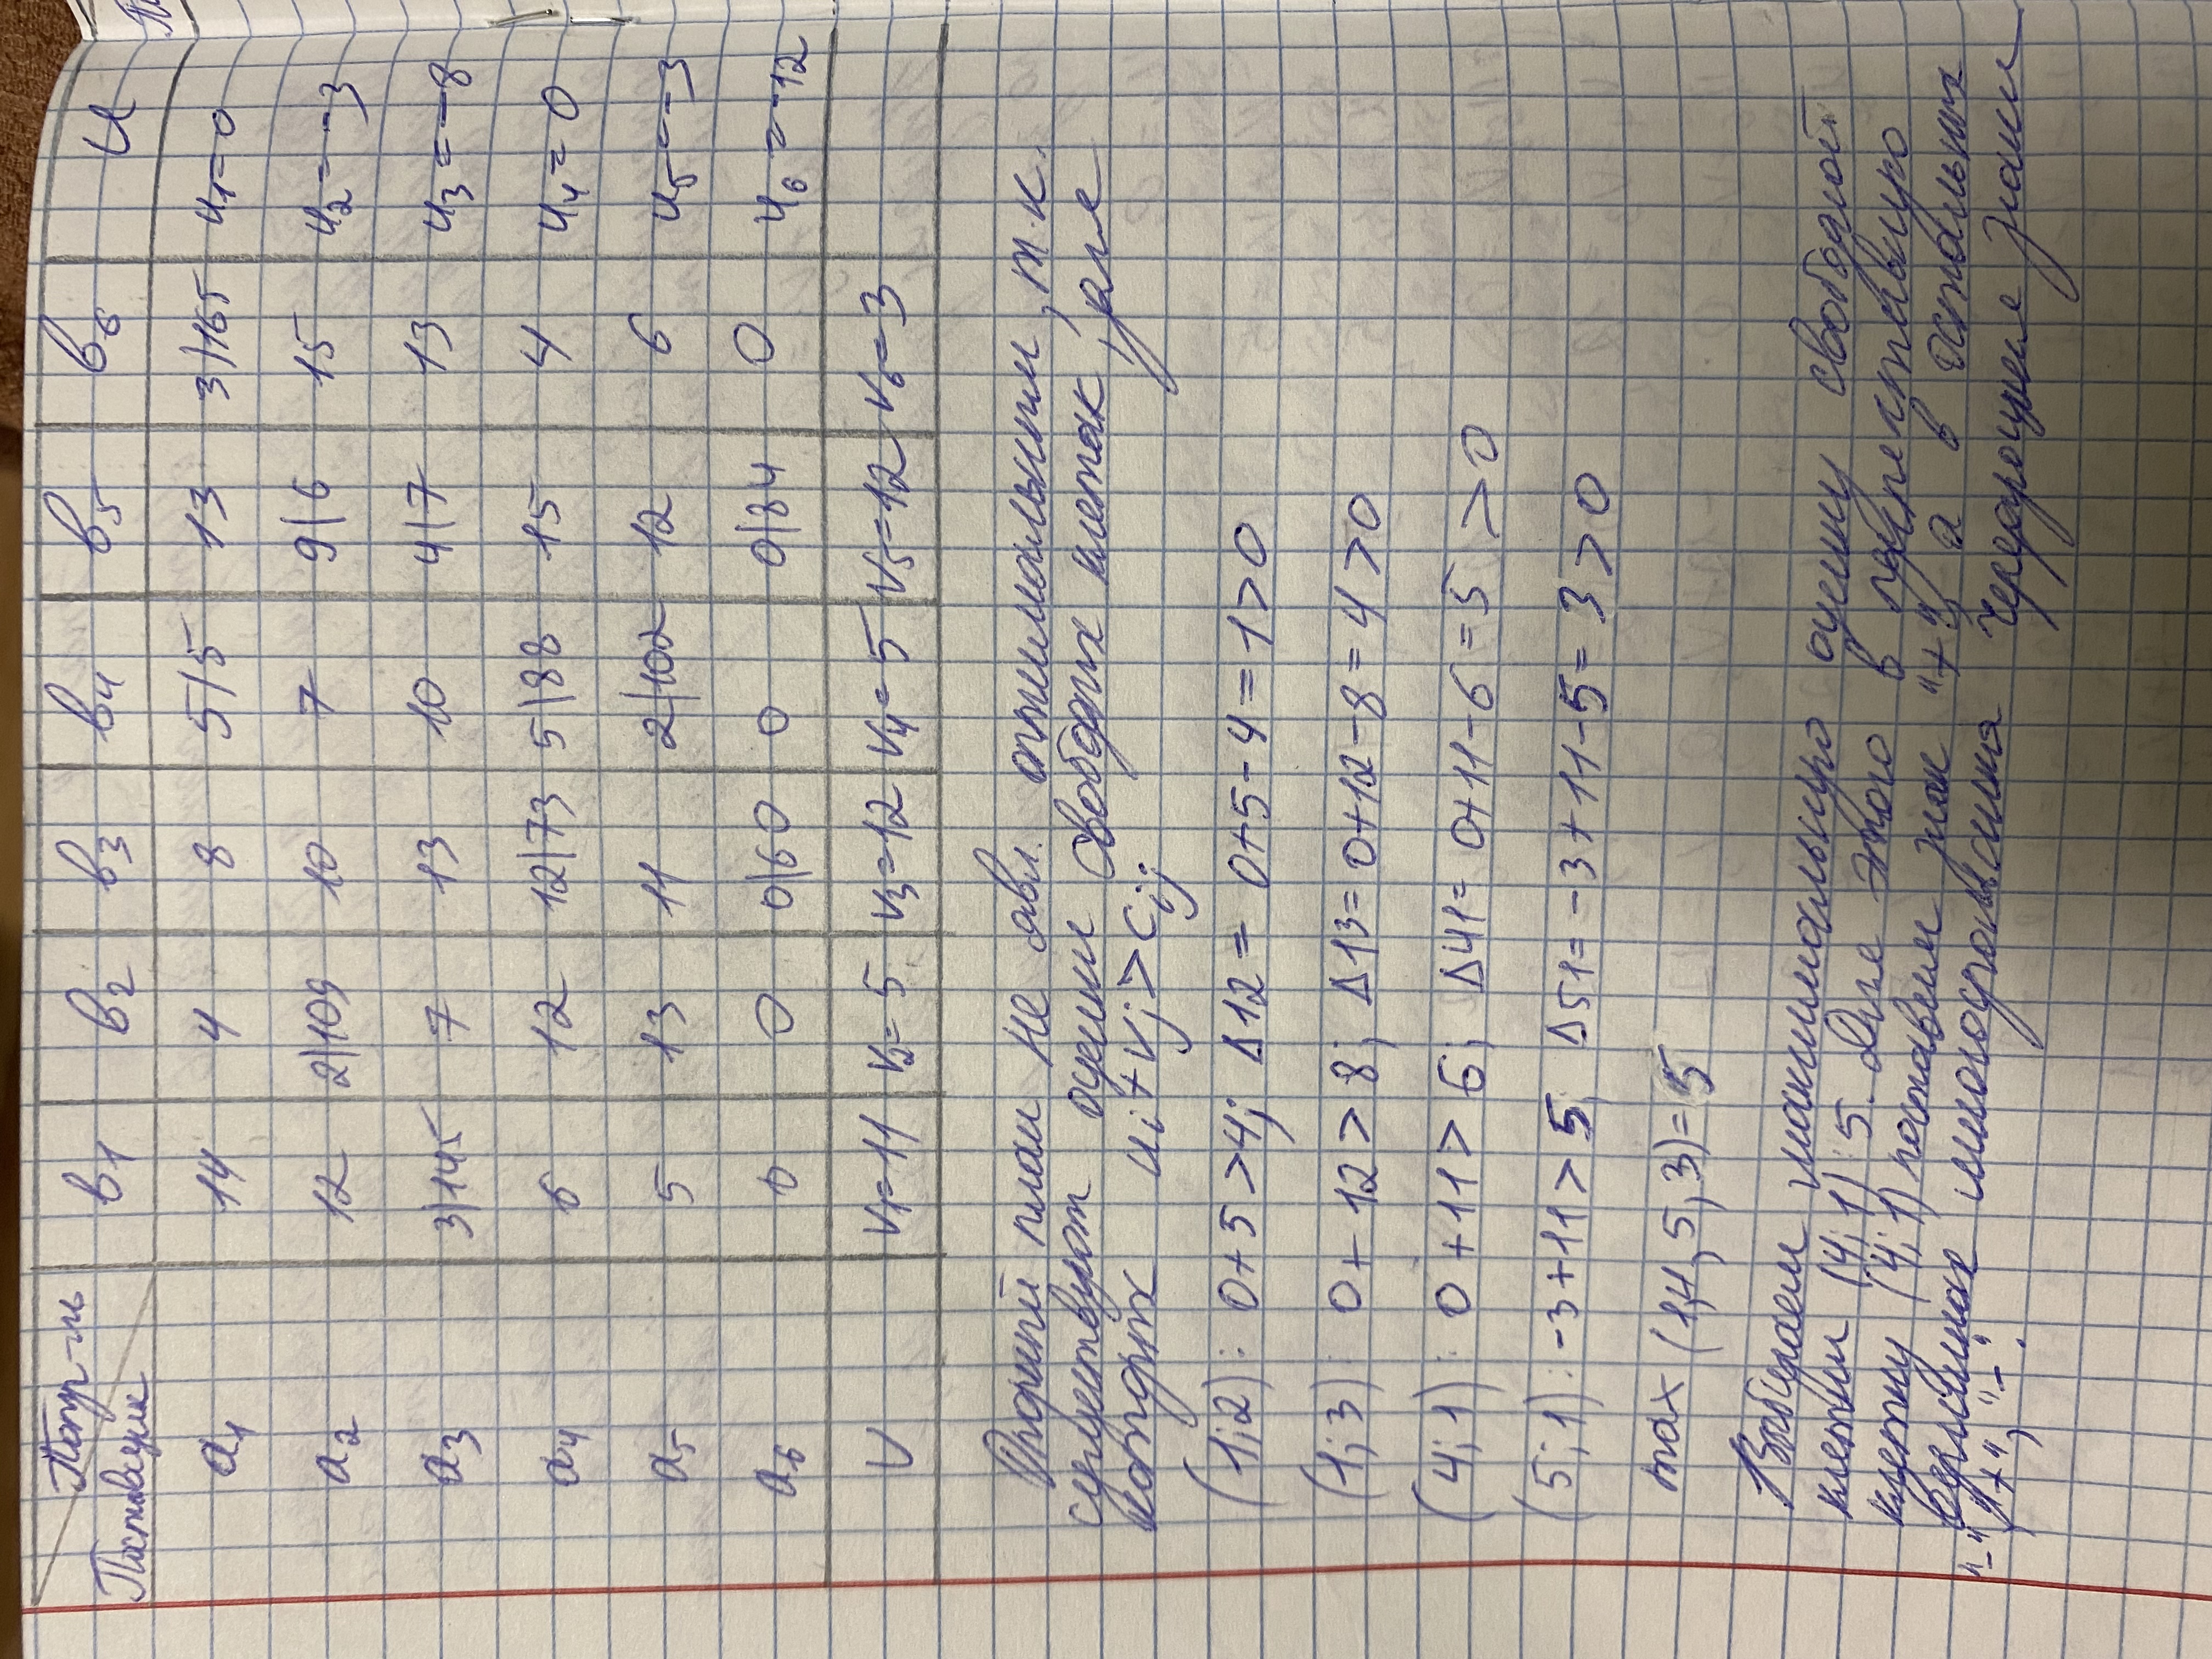 Потр-ль
Поставщик в1 в2 в3 в4 в5 в6 U
a1 14 4 8 5|5 13 3|165 u1=0
a2 12 2|109 10 7 9|6 15 u2=-3
a3 3|145 7 13 10 4|7 13 u3=-8
a4 6 12 12|73 5|88 15 4 u4=0
a5 5 13 11 2|102 12 6 u5=-3
a6 0 0 0|60 0 0|84 0 u6=-12
V V1=11 V2=5 V3=12 V4=5 V5=12 V6=3
Опорный план не явл. оптимальным, т.к.
существуют оценки свободных клеток, для
которых ui+vj>cij
(1;2): 0+5>4; Δ12= 0+5-4=1>0
(1;3): 0+12>8; Δ13=0+12-8=4>0
(4;1): 0+11>6; Δ41=0+11-6=5>0
(5;1): -3+11>5; Δ51=-3+11-5=3>0
max (1,4,5,3)=5
Выбираем максимальную оценку свободной
клетки (4;1):5. Для этого в перспективную
клетку (4;1) поставим знак "+", а в остальных
вершинах многоугольника чередующиеся знаки
"-", "+", "-".